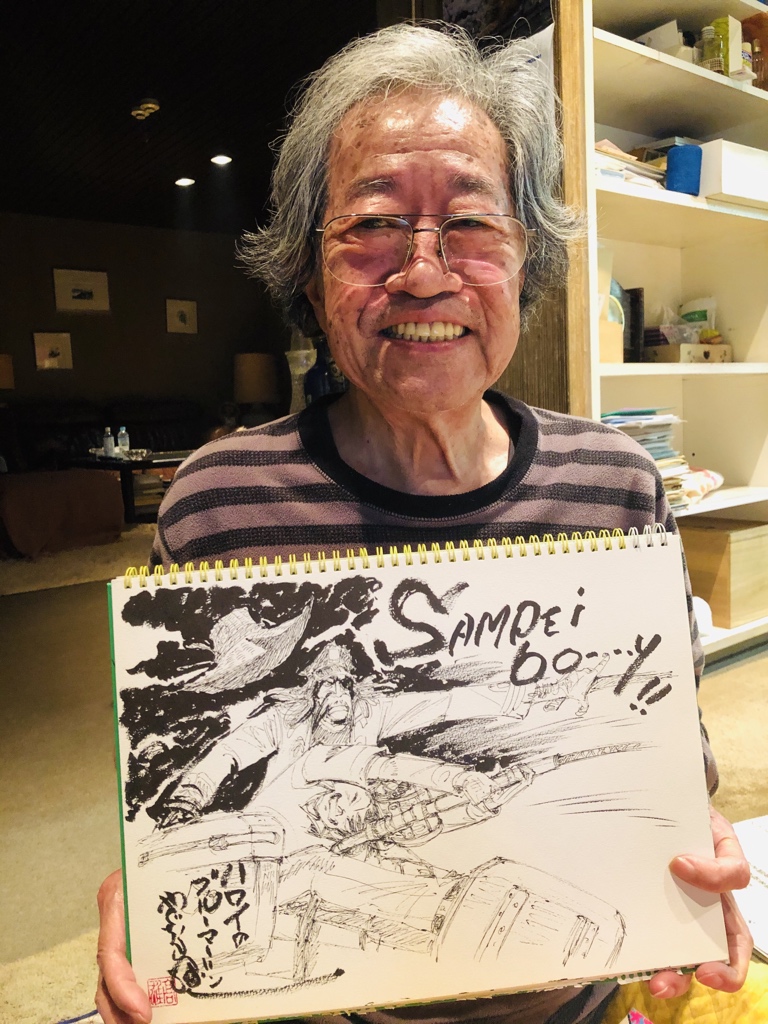 SAMPEi
bo....y!!
ハワイの
ブルーマーリン